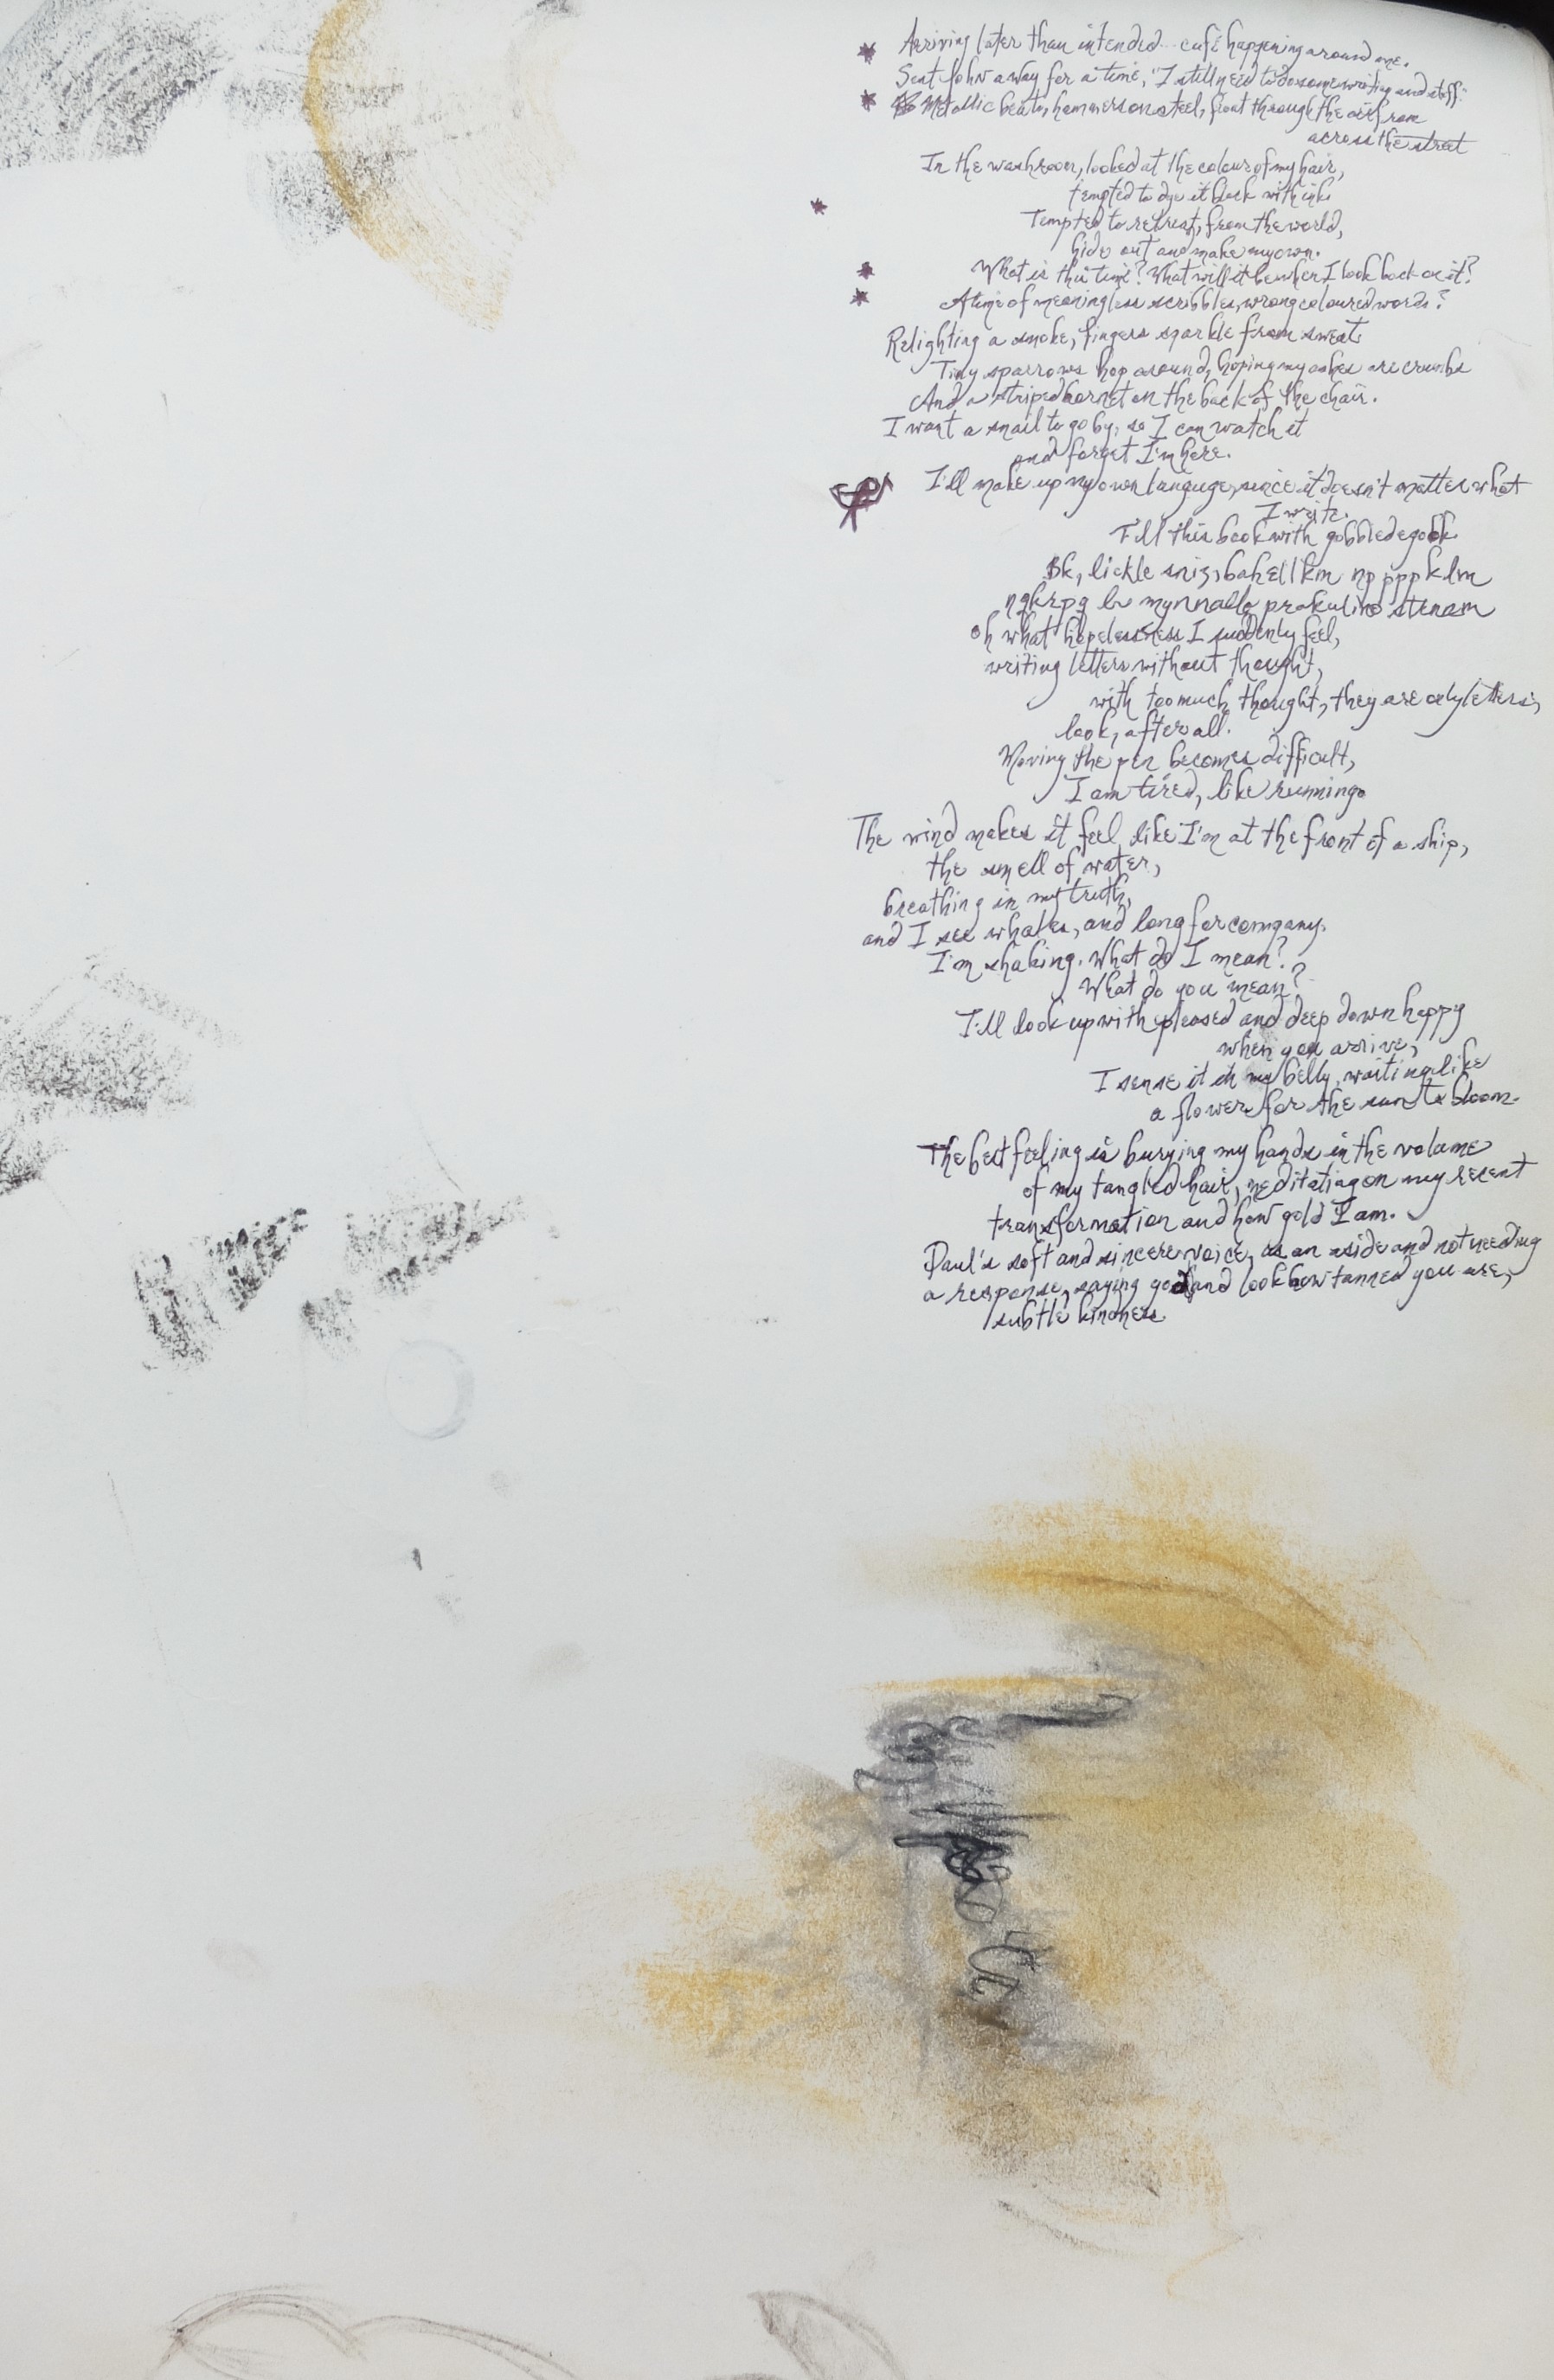 Arriving later than intended... café happening around me.
Sent John away for a time, "I still need to do some writing and stuff."
Metallic beats, hammers on steel, float through the air from
across the street
In the washroom, looked at the colour of my hair,
tempted to dye it back with ink
Tempted to retreat, from the world,
hide out and make my own.
What is this time? What will it be when I look back on it?
A time of meaningless scribbles, wrong coloured words?
Relighting a smoke, fingers sparkle from sweat
Tiny sparrows hop around, hoping my ashes are crumbs
And a striped hornet on the back of the chair.
I want a snail to go by, so I can watch it
and forget I'm here.
I'll make up my own language, since it doesn't matter what
I write.
Fill this book with gobbledegook
Bk, lickle sniz, bahEllkm np ppp klm
ngkrpg lv mynnallo prakulino stenam
oh what hopelessness I suddenly feel,
writing letters without thought,
with too much thought, they are only letters,
look, after all.
Moving the pen becomes difficult,
I am tired, like running
The wind makes it feel like I'm at the front of a ship,
the smell of water,
breathing in my truth,
and I see whales, and long for company.
I'm shaking. What do I mean?
What do you mean?
I'll look up with pleased and deep down happy
when you arrive,
I sense it in my belly, waiting like
a flower for the sun to bloom.
The best feeling is burying my hands in the volume
of my tangled hair, meditating on my recent
transformation and how gold I am.
Paul's soft and sincere voice, as an aside and not needing
a response, saying god and look how tanned you are,
subtle kindness